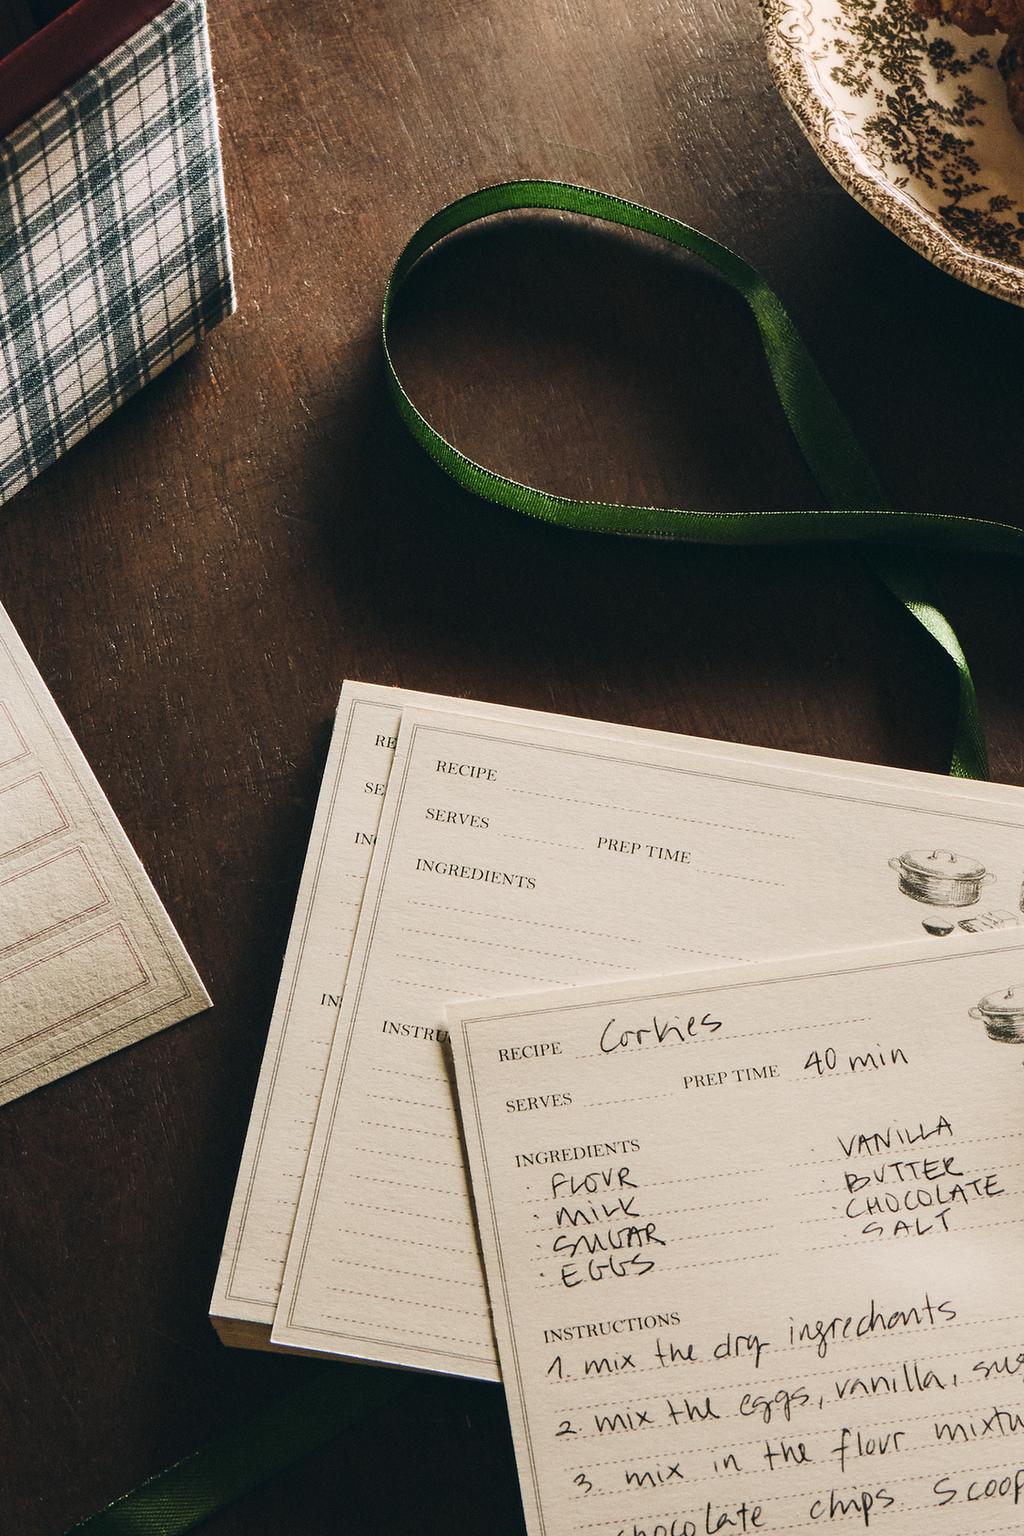 RE
SE
IN
IN
RECIPE
SERVES PREP TIME
INGREDIENTS
INSTRU
RECIPE Cookies
SERVES PREP TIME 40 min
INGREDIENTS
· FLOUR · VANILLA
· MILK · BUTTER
· SUGAR · CHOCOLATE
· EGGS · SALT
INSTRUCTIONS
1. mix the dry ingredients
2. mix the eggs, vanilla, sug
3 mix in the flour mixtu
chocolate chips Scoop